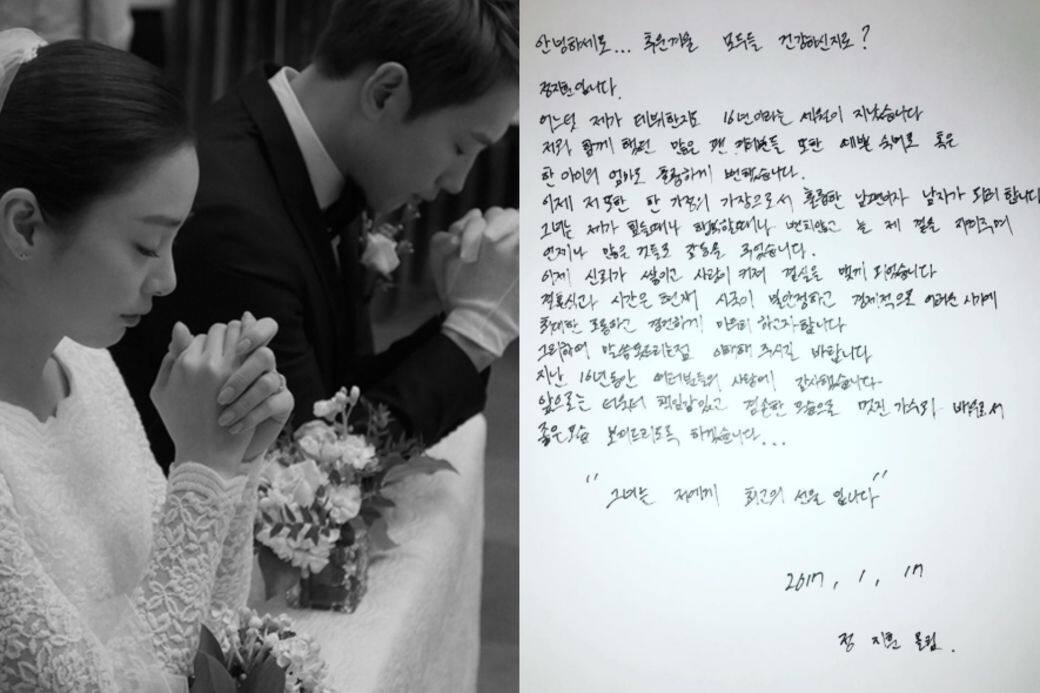 안녕하세요... 추운겨울 모두들 건강하신지요?
정지훈입니다.
어느덧 제가 데뷔한지도 16년이라는 세월이 지났습니다
저와 함께 했던 많은 팬 여러분들 또한 예쁜 숙녀로 혹은
한 아이의 엄마로 훌륭하게 변했습니다.
이제 저 또한 한 가정의 가장으로서 훌륭한 남편이자 남자가 되려 합니다
그녀는 제가 힘들때나 행복할때나 변치않고 늘 제 곁을 지켜주며
언제나 많은 것들로 감동을 주었습니다.
이제 신뢰가 쌓이고 사랑이 커져 결실을 맺게 되었습니다
결혼식과 시간은 현재 시국이 불안정하고 경제적으로 어려운 시기에
최대한 조용하고 경건하게 마무리 하고자합니다
그리하여 말씀못드리는점 이해해 주시길 바랍니다
지난 16년동안 여러분들의 사랑에 감사했습니다
앞으로는 더욱더 책임감있고 겸손한 모습으로 멋진 가수와 배우로서
좋은모습 보여드리도록 하겠습니다...
"그녀는 저에게 최고의 선물 입니다"
2017. 1. 17
정 지훈 올림.